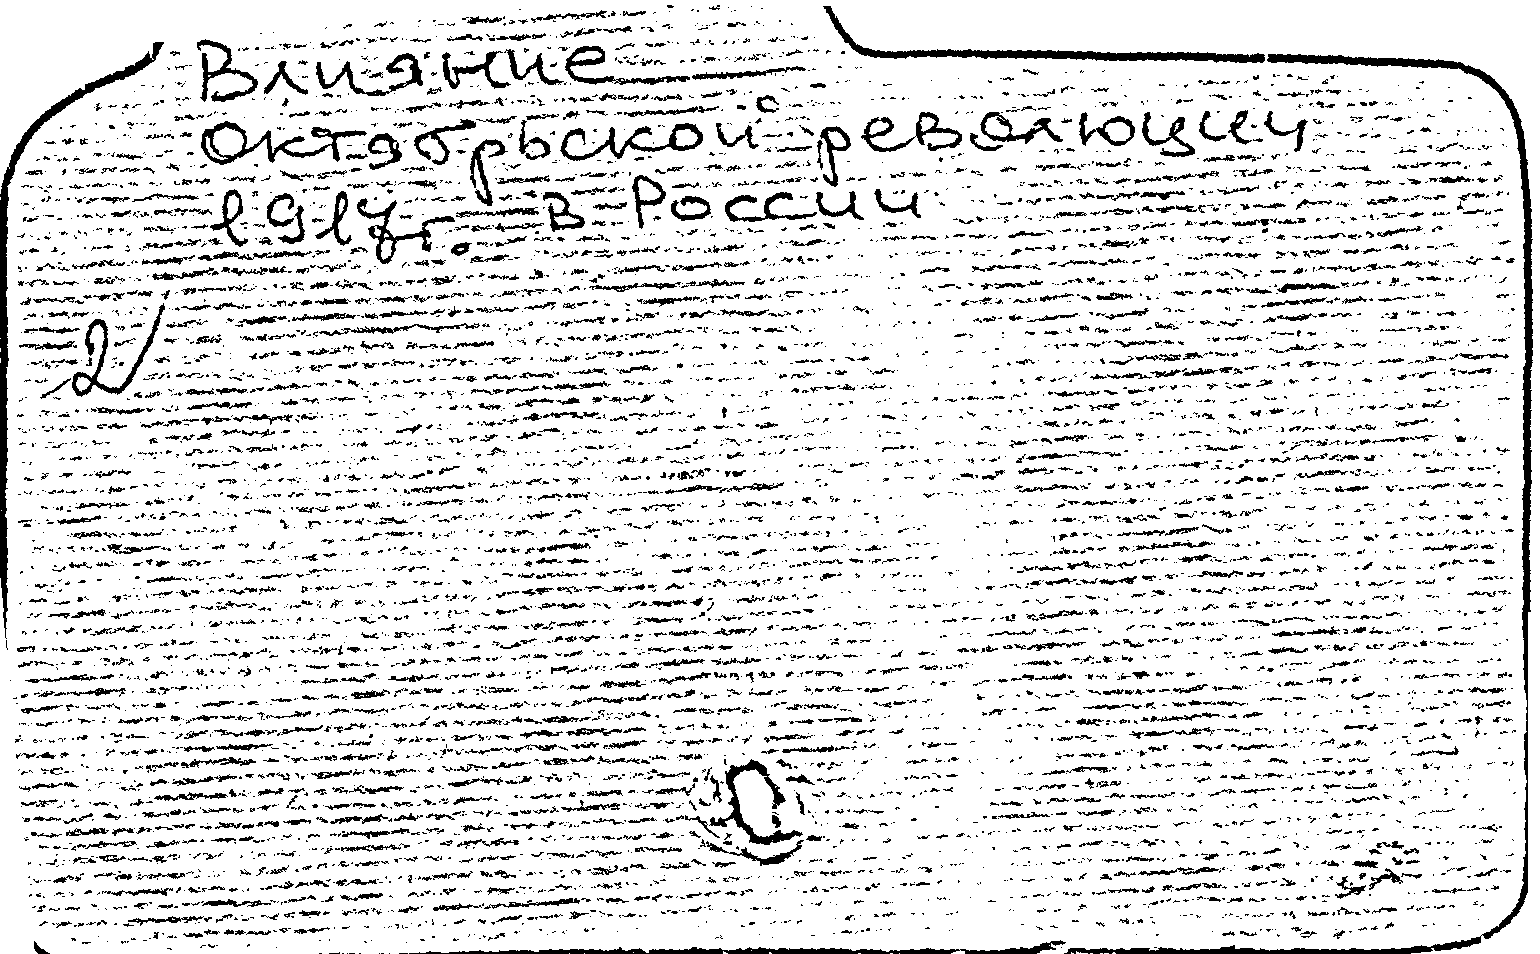 Влияние
Октябрьской революции
1917 г. в России
2